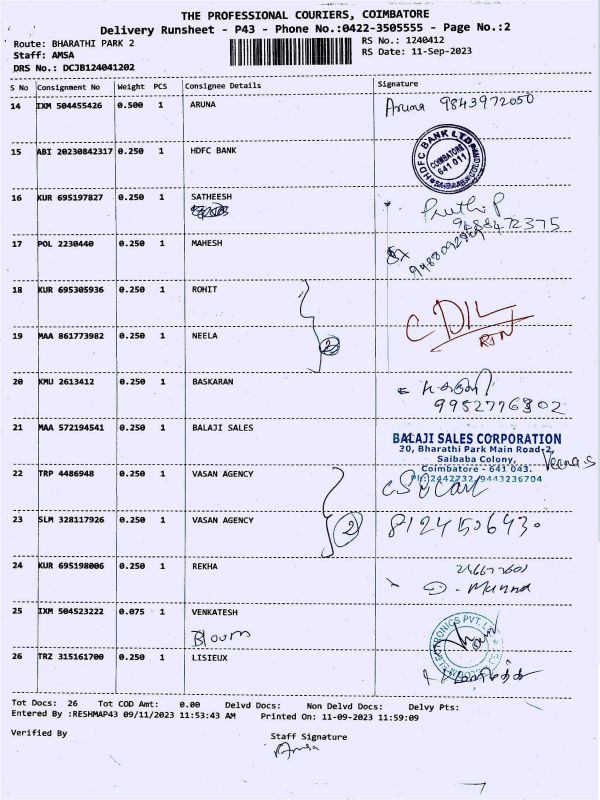 THE PROFESSIONAL COURIERS, COIMBATORE
Delivery Runsheet - P43 - Phone No.:0422-3505555 - Page No.:2
Route: BHARATHI PARK 2 RS No.: 1240412
Staff: AMSA RS Date: 11-Sep-2023
DRS No.: DCJB124041202
S No Consignment No Weight PCS Consignee Details Signature
14 IXM 504455426 0.500 1 ARUNA Aruna 9843972050
15 ABI 20230842317 0.250 1 HDFC BANK HDFC BANK LTD COIMBATORE 641 011
16 KUR 695197827 0.250 1 SATHEESH
9488472375
17 POL 2230440 0.250 1 MAHESH
18 KUR 695305936 0.250 1 ROHIT
2
19 MAA 861773982 0.250 1 NEELA
20 KMU 2613412 0.250 1 BASKARAN
9952776302
21 MAA 572194541 0.250 1 BALAJI SALES
BALAJI SALES CORPORATION
30, Bharathi Park Main Road-2,
Saibaba Colony,
Coimbatore - 641 043.
Ph: 2442732, 9443236704
22 TRP 4486948 0.250 1 VASAN AGENCY
2
23 SLM 328117926 0.250 1 VASAN AGENCY 8124506430
24 KUR 695198006 0.250 1 REKHA
25 IXM 504523222 0.075 1 VENKATESH
26 TRZ 315161700 0.250 1 LISIEUX
Tot Docs: 26 Tot COD Amt: 0.00 Delvd Docs: Non Delvd Docs: Delvy Pts:
Entered By :RESHMAP43 09/11/2023 11:53:43 AM Printed On: 11-09-2023 11:59:09
Verified By Staff Signature
Amsa